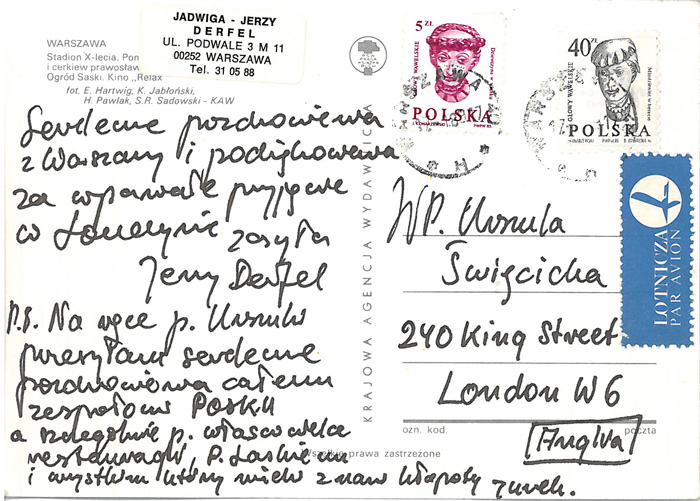 JADWIGA - JERZY
DERFEL
UL. PODWALE 3 M 11
00252 WARSZAWA
Tel. 31 05 88
WARSZAWA
Stadion X-lecia.
i cerkiew prawosław
Ogród Saski. Kino „Relax
fot. E. Hartwig, K. Jabłoński,
H. Pawlak, S.R. Sadowski - KAW
Serdeczne pozdrowienia
z Warszawy i podziękowania
za wspaniałe przyjęcie
w Londynie zasyła
Jerzy Derfel
P.S. Na ręce p. Urszuli
przesyłam serdeczne
pozdrowienia całemu
zespołowi POSKU
a szczególnie p. właścicielce
restauracji, P.
i wszystkim którzy mieli z nami kłopoty
KRAJOWA AGENCJA WYDAWNICZA
5 ZŁ
GŁOWY WAWELSKIE
POLSKA
PWPW 85
40 ZŁ
GŁOWY WAWELSKIE
POLSKA
LOTNICZA
PAR AVION
WP. Urszula
Święcicka
240 King Street
London W6
ozn. kod. poczta
Anglia
Wszelkie prawa zastrzeżone